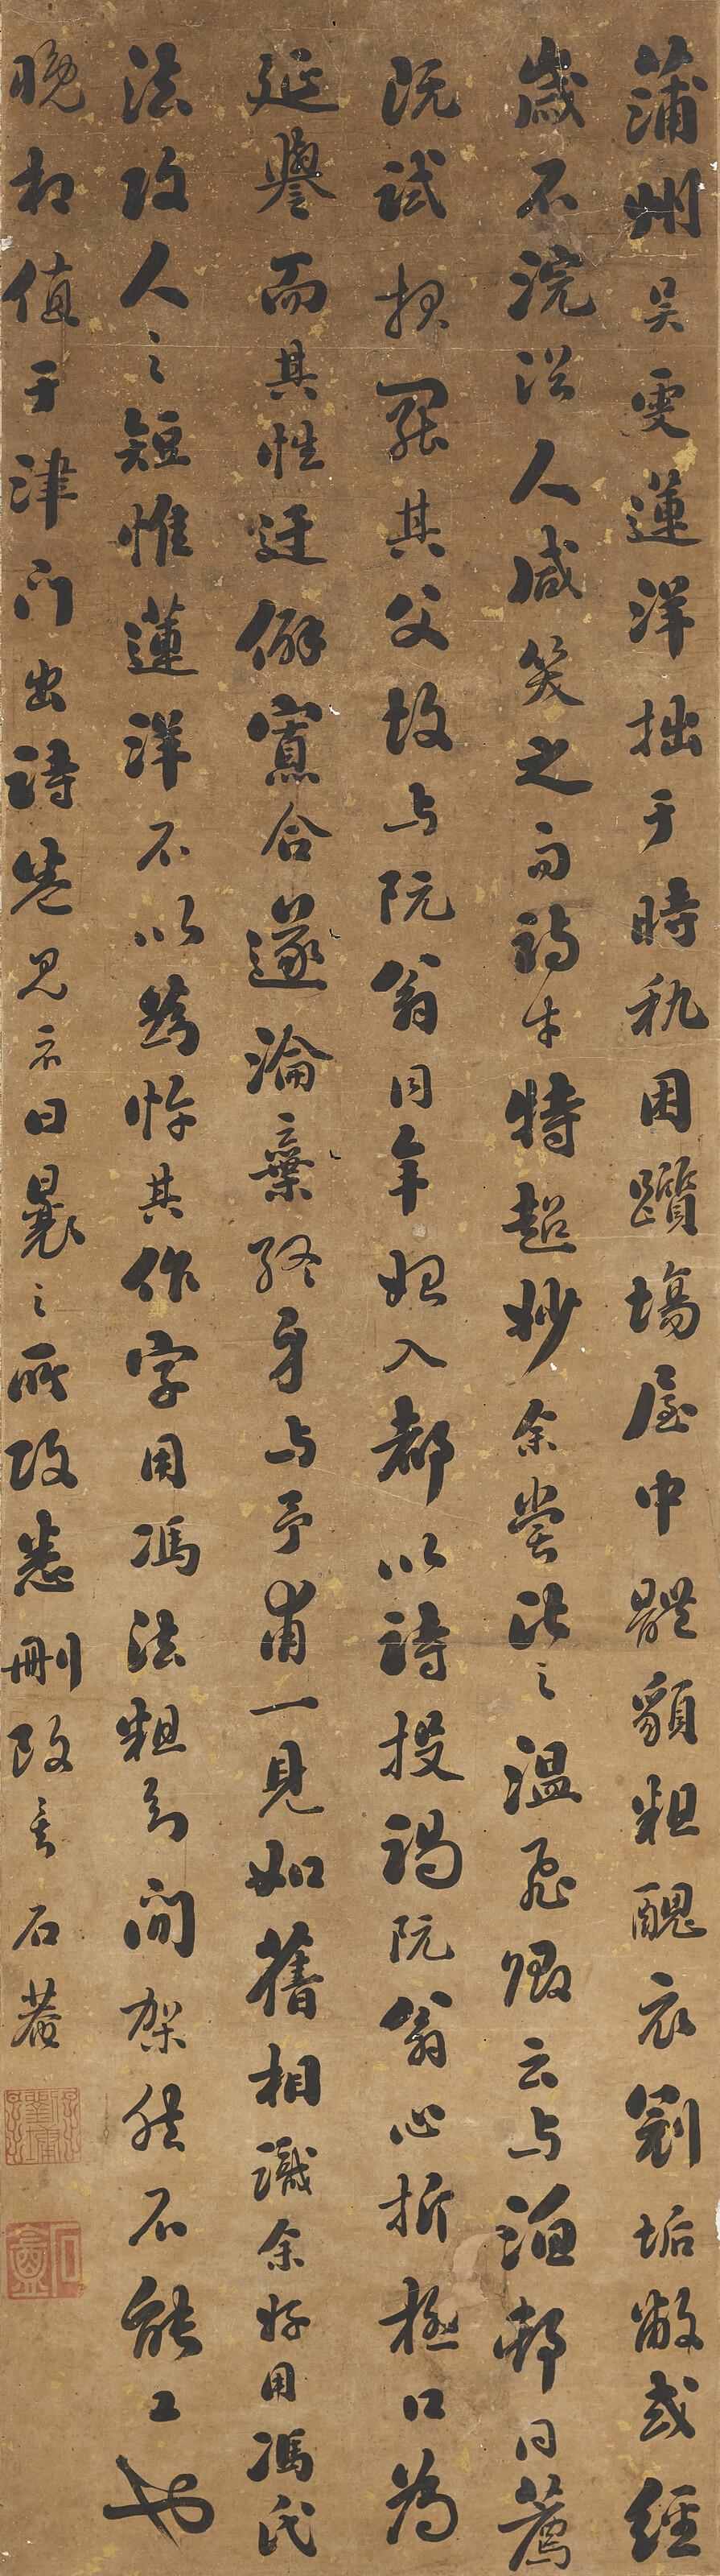 蒲州吴雯蓮洋拙于時秇困躓塲屋中體貌粗醜衣劄垢敝或經
歲不浣濯人咸笑之而詩才特超妙余嘗比之温飛卿云与洄邨同薦
既試報罷其父故与阮翁同年始入都以詩投謁阮翁心折極口为
延譽而其性迂僻寡合遂淪棄終身与予甫一見如舊相識余好用馮氏
法攻人之短惟蓮洋不以為忤其作字用馮法粗知间架然不能工也
晚相值于津门出詩卷見示曰曩之所攻悉刪改矣 石菴